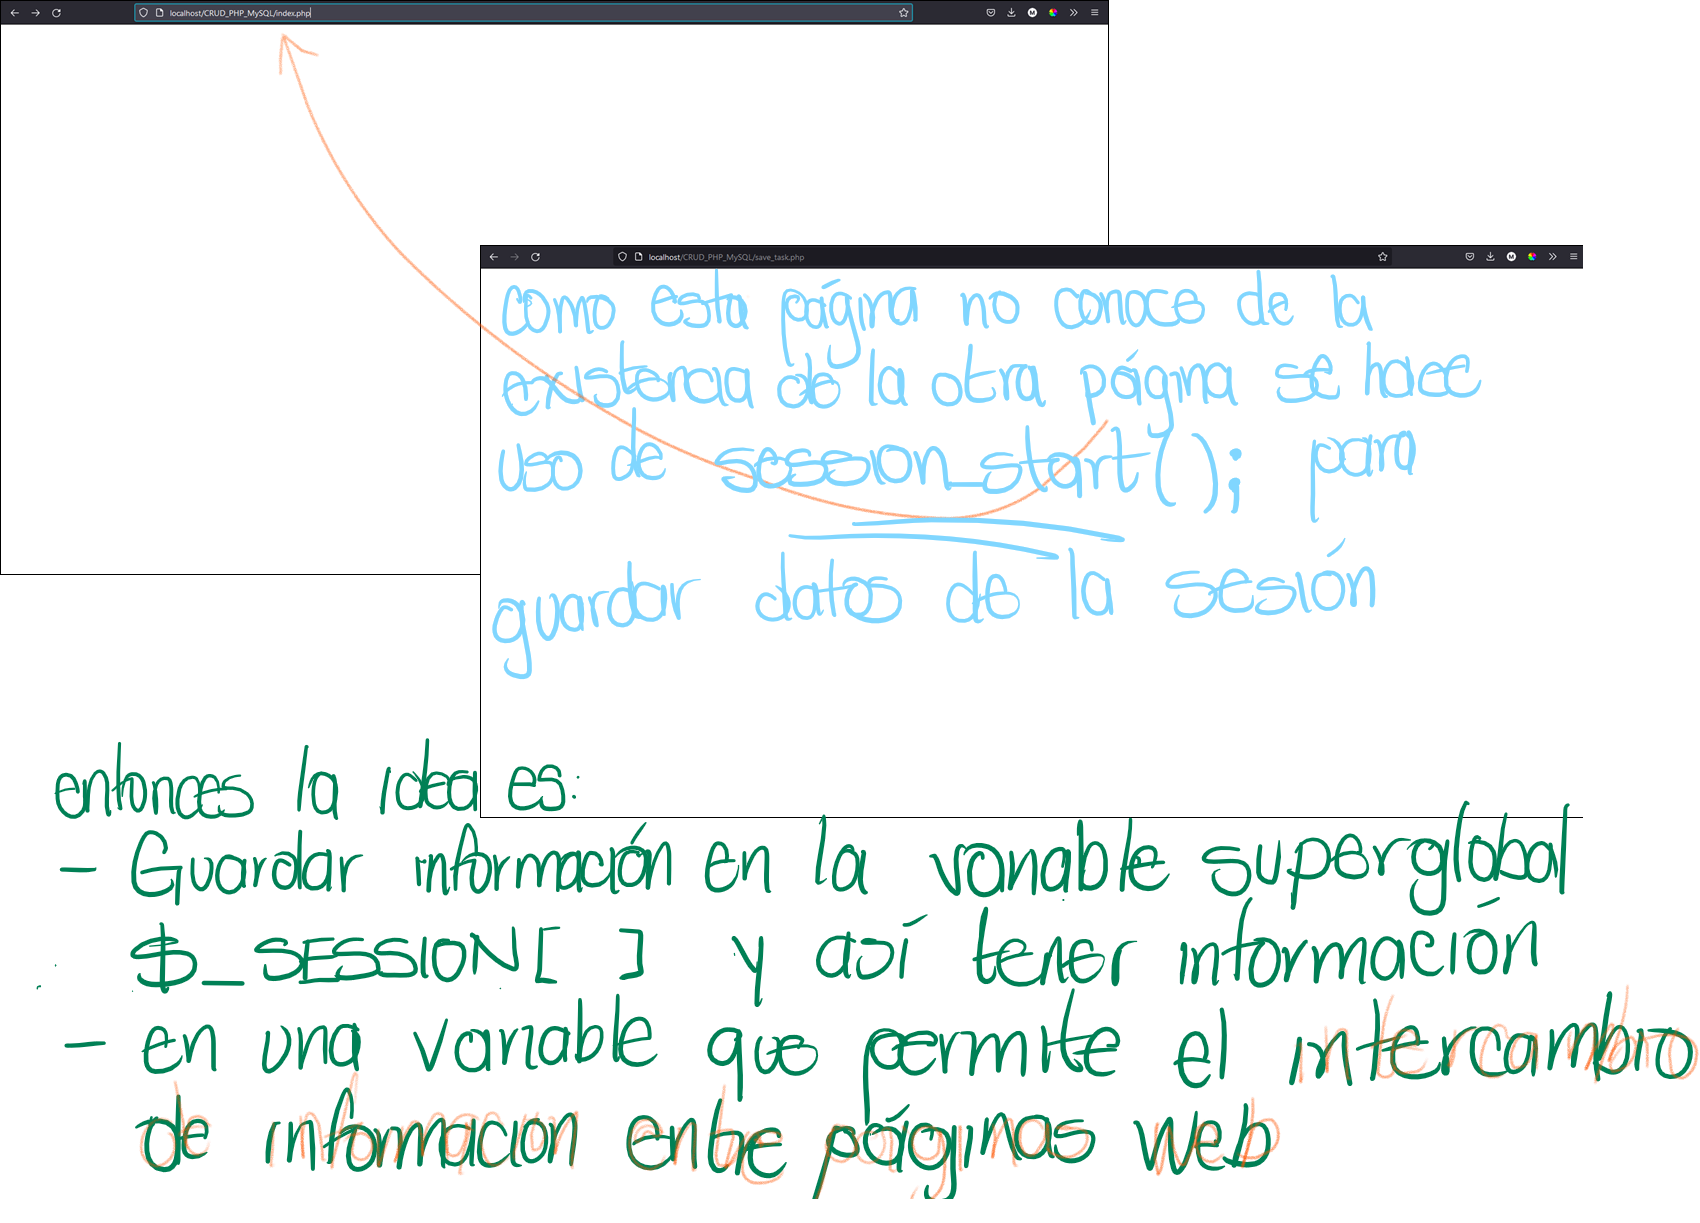 localhost/CRUD_PHP_MySQL/index.php
localhost/CRUD_PHP_MySQL/save_task.php
como esta página no conoce de la
existencia de la otra página se hace
uso de session_start(); para
guardar datos de la sesión
entonces la idea es:
- Guardar información en la variable superglobal
$_SESSION[ ] y así tener información
- en una variable que permite el intercambio
de informacion entre páginas web